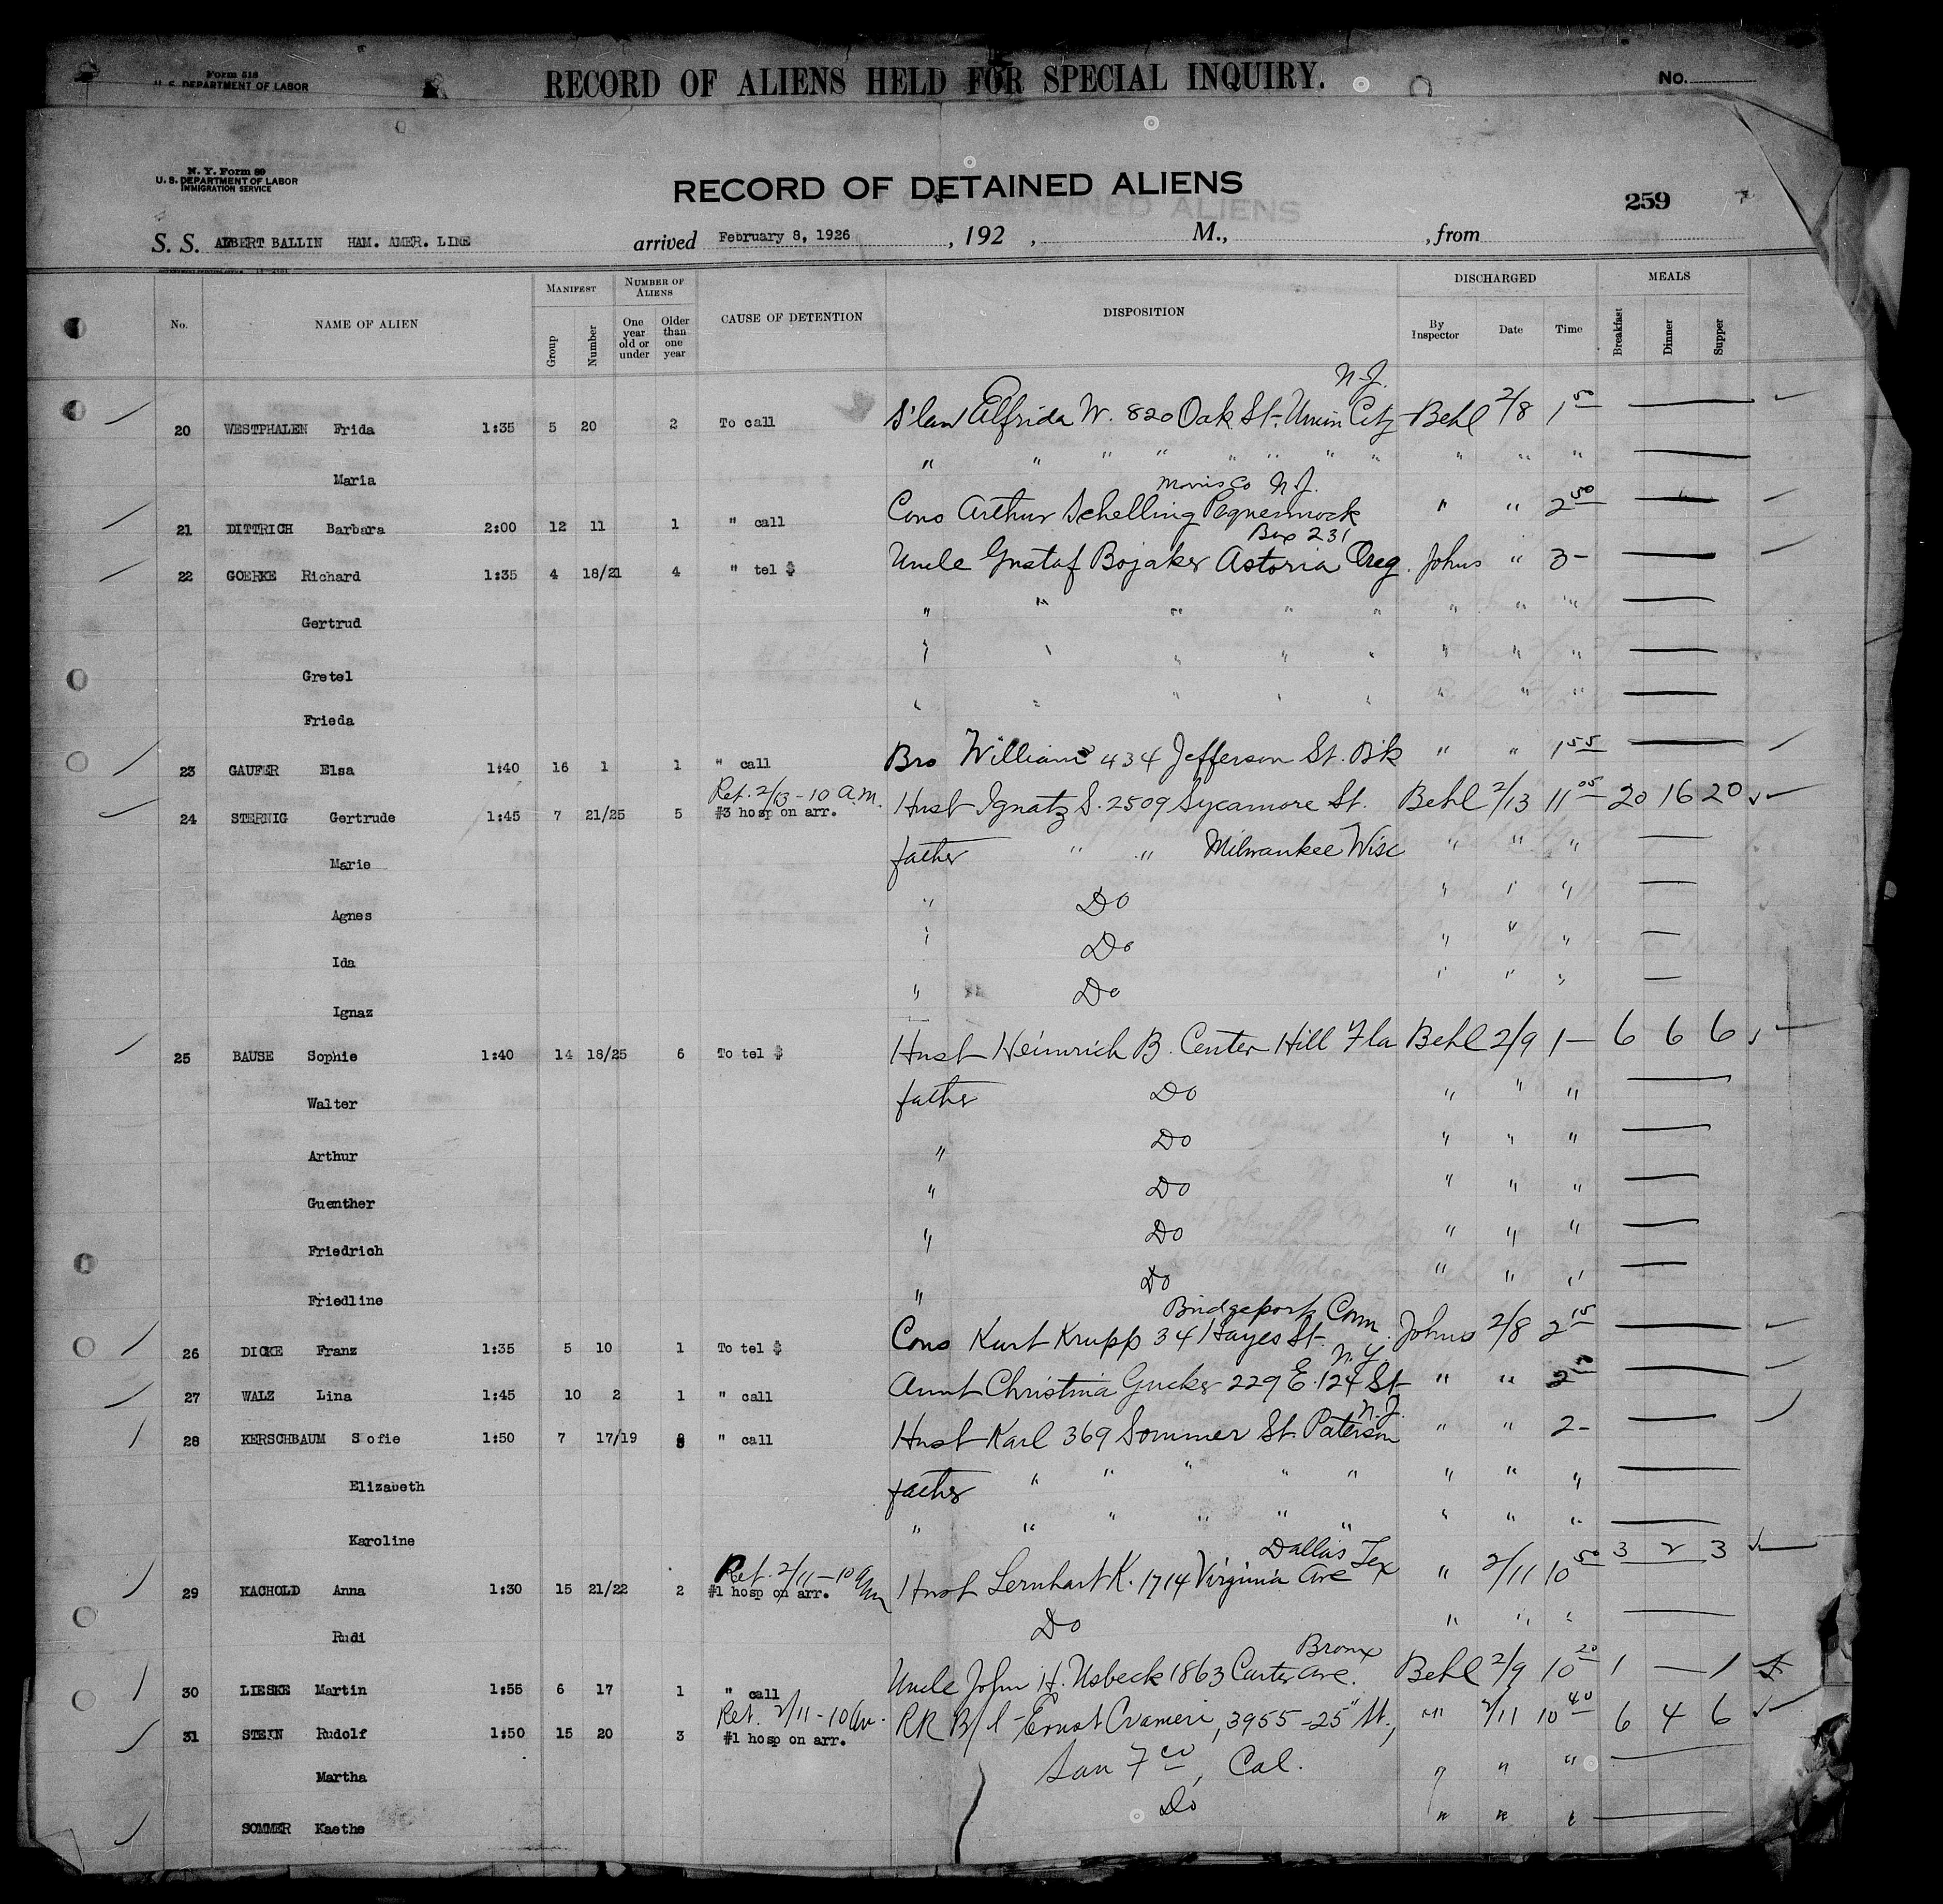 Form 518
U. S. DEPARTMENT OF LABOR
RECORD OF ALIENS HELD FOR SPECIAL INQUIRY.
No.
N. Y. Form 89
U. S. DEPARTMENT OF LABOR
IMMIGRATION SERVICE
RECORD OF DETAINED ALIENS
259
S. S. ALBERT BALLIN HAM. AMER. LINE arrived February 8, 1926 , 192 , M., , from
No. NAME OF ALIEN MANIFEST Group Number NUMBER OF ALIENS One year old or under Older than one year CAUSE OF DETENTION DISPOSITION DISCHARGED By Inspector Date Time MEALS Breakfast Dinner Supper
N.J.
20 WESTPHALEN Frida 1:35 5 20 2 To call S'law Elfrida W. 820 Oak St. Union City Behl 2/8 1 50
Maria " " " " " " " " " " "
Morris Co N.J.
21 DITTRICH Barbara 2:00 12 11 1 " call Cons Arthur Schelling Pequennock " " 2 50
Box 231
22 GOERKE Richard 1:35 4 18/21 4 " tel $ Uncle Gustaf Bojaker Astoria Oreg. Johns " 3-
Gertrud " " " " " " " "
Gretel " " " " " " " "
Frieda " " " " " " " "
23 GAUFER Elsa 1:40 16 1 1 " call Bro William 434 Jefferson St. Bk " " 1 55
Ret. 2/13-10 A.M.
24 STERNIG Gertrude 1:45 7 21/25 5 #3 hosp on arr. Husb Ignatz S. 2509 Sycamore St. Behl 2/13 11 05 20 16 20
Marie father " " Milwaukee Wisc " " "
Agnes " Do " " "
Ida " Do " " "
Ignaz " Do " " "
25 BAUSE Sophie 1:40 14 18/25 6 To tel $ Husb Heinrich B. Center Hill Fla Behl 2/9 1- 6 6 6
Walter father Do " " "
Arthur " Do " " "
Guenther " Do " " "
Friedrich " Do " " "
Friedline " Do " " "
Bridgeport Conn
26 DICKE Franz 1:35 5 10 1 To tel $ Cons Kurt Krupp 34 Hayes St. Johns 2/8 2 15
N.Y.
27 WALZ Lina 1:45 10 2 1 " call Aunt Christina Gucker 229 E. 124 St " " 2
N.J.
28 KERSCHBAUM Sofie 1:50 7 17/19 3 " call Husb Karl 369 Sommer St. Paterson " " 2-
Elizabeth father " " " " " " " "
Karoline " " " " " " " " "
Ret. 2/11-10 am Dallas Tex
29 KACHOLD Anna 1:30 15 21/22 2 #1 hosp on arr. Husb Lernhart K. 1714 Virginia Ave " 2/11 10 50 3 2 3
Rudi Do " " "
Bronx
30 LIESKE Martin 1:55 6 17 1 " call Uncle John H. Usbeck 1863 Carter Ave. Behl 2/9 10 20 1 — 1
Ret. 2/11-10 am.
31 STEIN Rudolf 1:50 15 20 3 #1 hosp on arr. RR B/l - Ernst Crameri, 3955-25" St., " 2/11 10 40 6 4 6
Martha San Fco, Cal. " " "
SOMMER Kaethe Do " " "